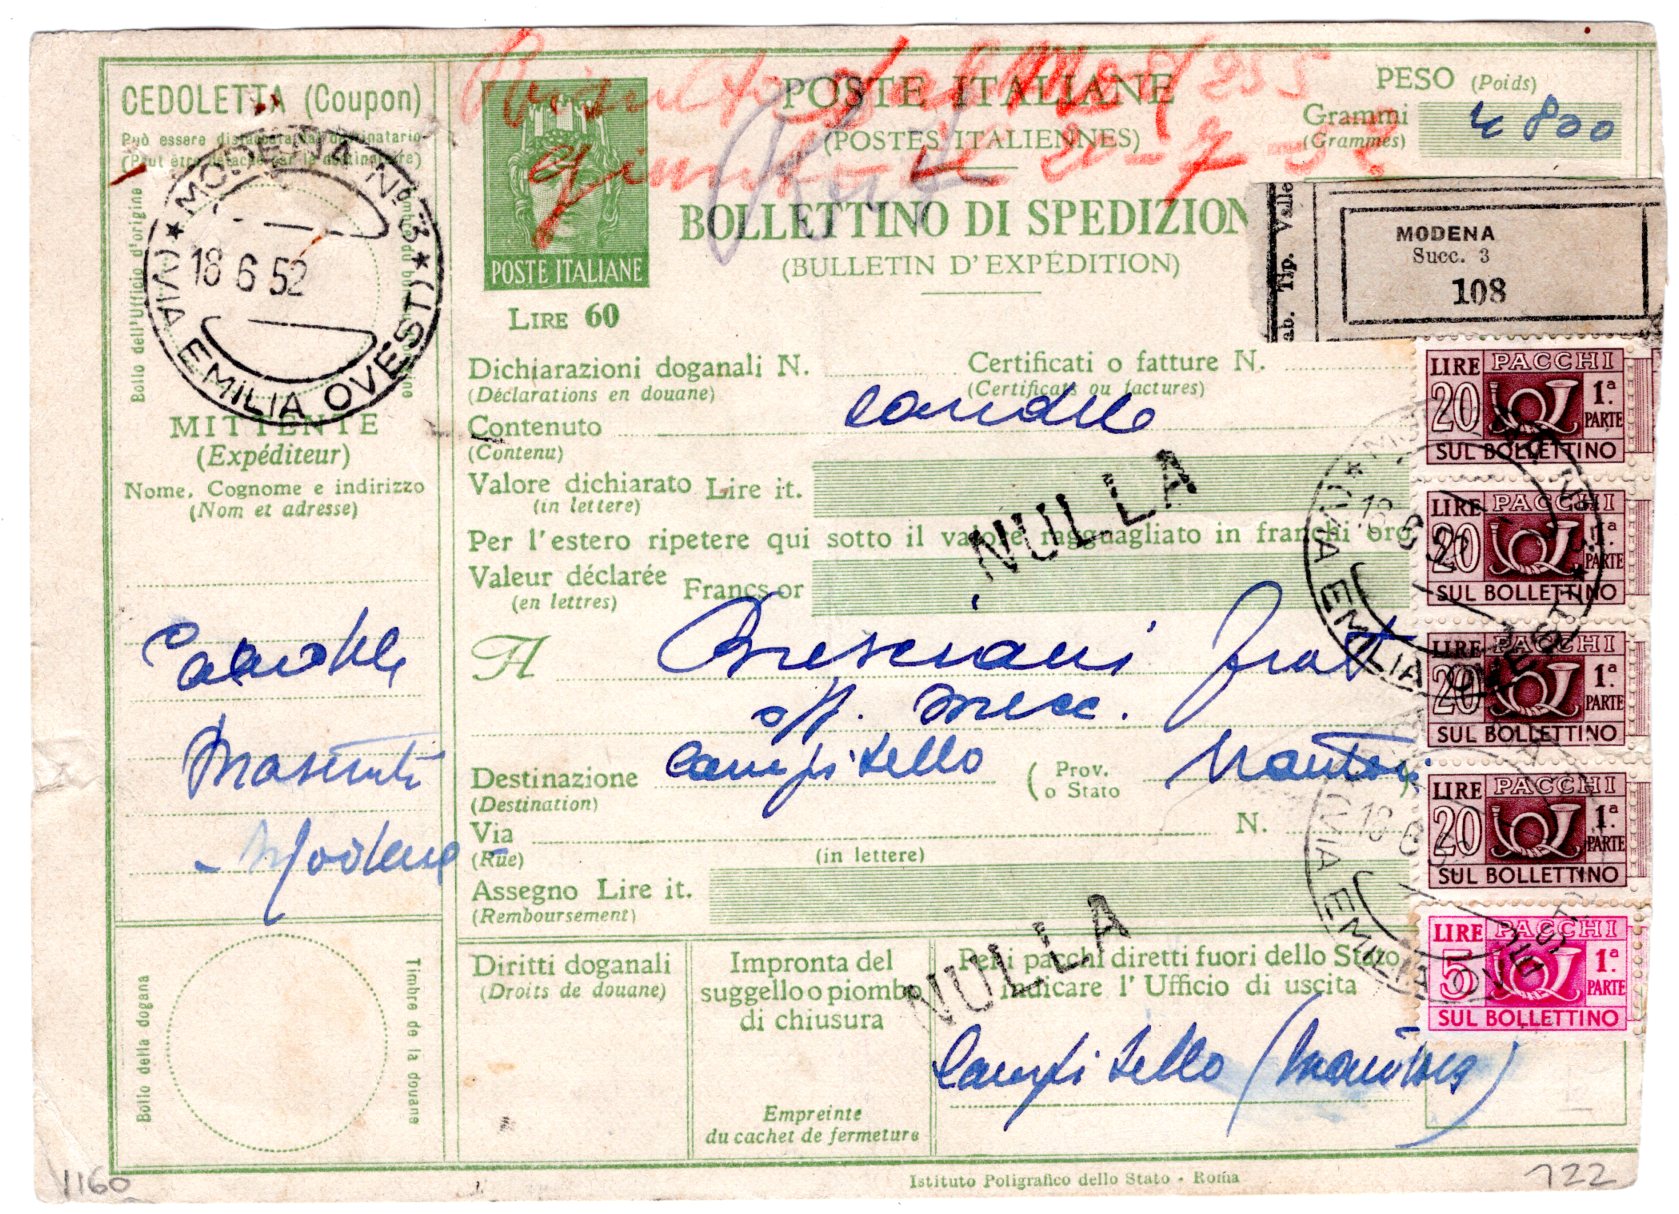 CEDOLETTA (Coupon)
Può essere distaccata dal destinatario
(Peut être détaché par le destinataire)
Bollo dell'Ufficio d'origine
MODENA N° 3 (VIA EMILIA OVEST)
18 6 52
MITTENTE
(Expéditeur)
Nome, Cognome e indirizzo
(Nom et adresse)
Modena
Bollo della dogana
Timbre de la douane
POSTE ITALIANE
LIRE 60
POSTE ITALIANE
(POSTES ITALIENNES)
255
2-7-52
BOLLETTINO DI SPEDIZION
(BULLETIN D'EXPÉDITION)
PESO (Poids)
Grammi
(Grammes)
4800
MODENA
Succ. 3
108
ab. Tip. Valle
Dichiarazioni doganali N.
(Déclarations en douane)
Certificati o fatture N.
(Certificats ou factures)
Contenuto
(Contenu)
candele
Valore dichiarato Lire it.
(in lettere)
NULLA
Per l'estero ripetere qui sotto il valore ragguagliato in franchi oro
Valeur déclarée Francs-or
(en lettres)
A Bresciani frat
off. mecc.
Destinazione Campitello (Prov. o Stato Mantova
(Destination)
Via N.
(Rue)
(in lettere)
Assegno Lire it.
(Remboursement)
NULLA
Diritti doganali
(Droits de douane)
Impronta del
suggello o piombo
di chiusura
Empreinte
du cachet de fermeture
Per i pacchi diretti fuori dello Stato
indicare l'Ufficio di uscita
Campitello (Mantova)
LIRE PACCHI
20 1ª PARTE
SUL BOLLETTINO
LIRE PACCHI
20 1ª PARTE
SUL BOLLETTINO
LIRE PACCHI
20 1ª PARTE
SUL BOLLETTINO
LIRE PACCHI
20 1ª PARTE
SUL BOLLETTINO
LIRE PACCHI
5 1ª PARTE
SUL BOLLETTINO
Istituto Poligrafico dello Stato - Roma
1160
122